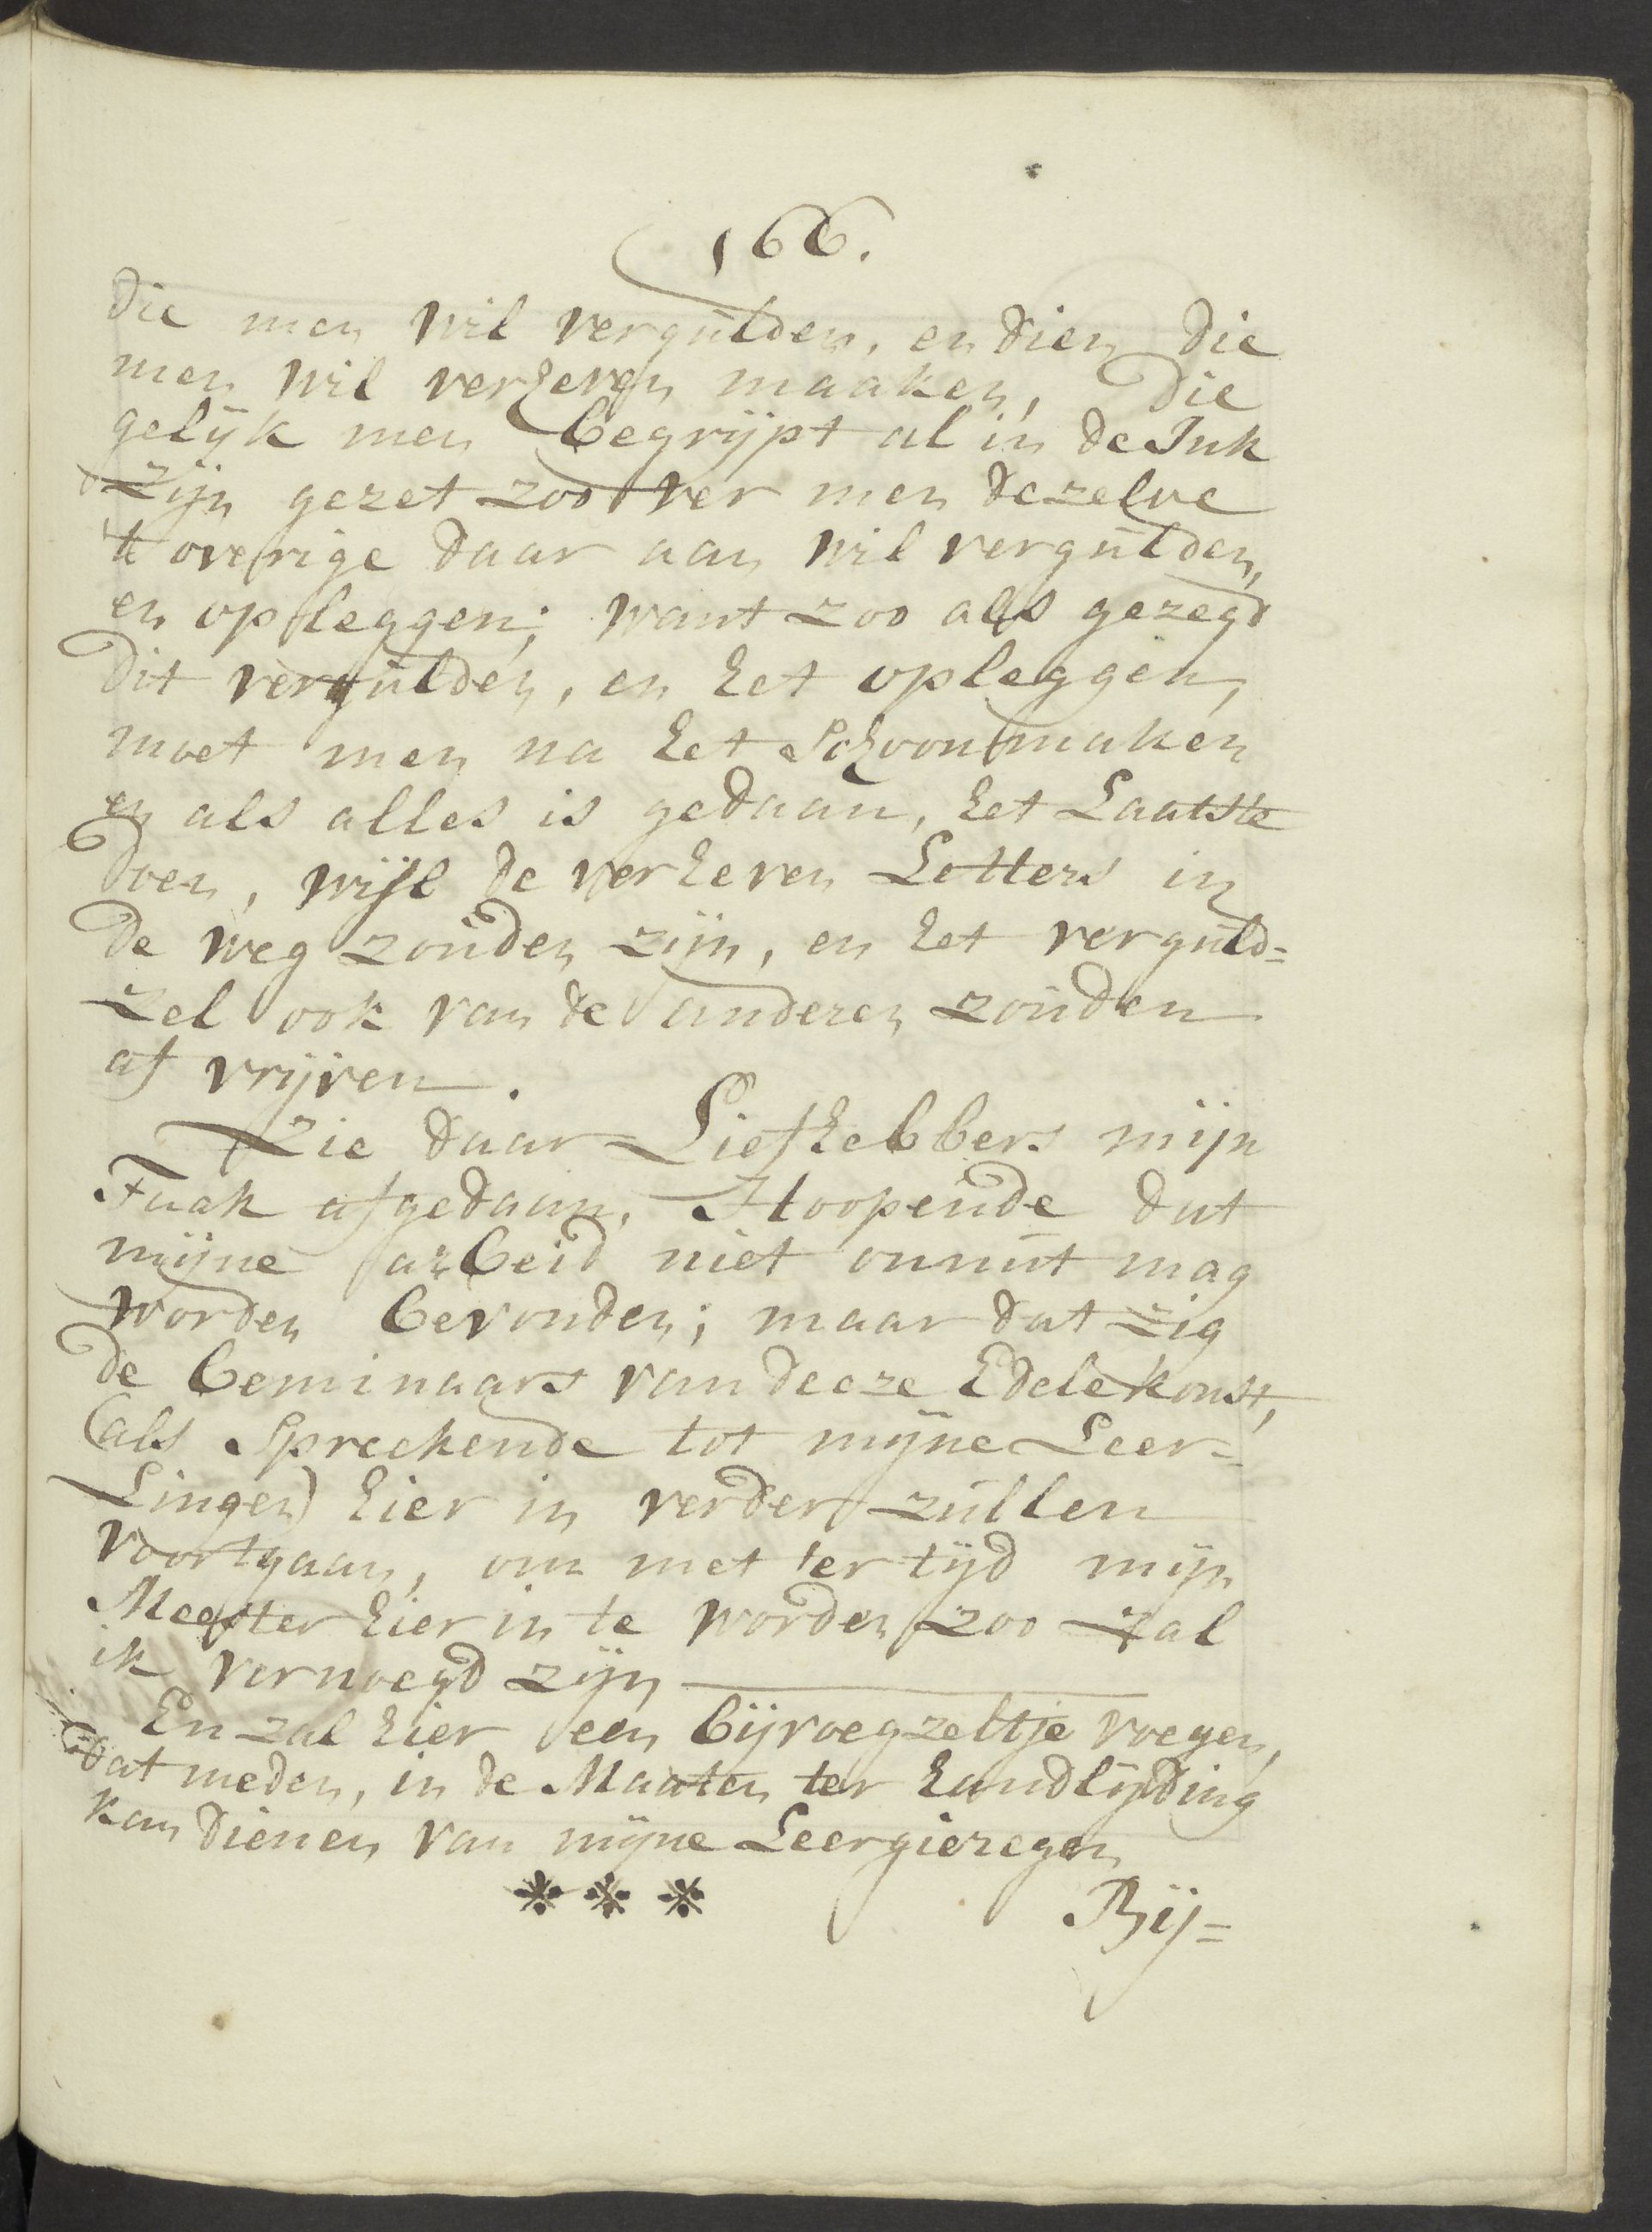 166.
die men wil vergulden, en dien die
men wil verheven maaken, die
gelijk men begrijpt al in de Ink
zijn gezet zoo ver men dezelve
't overige daar aan wil vergulden,
en opleggen; want zoo als gezegd
dit vergulden, en het opleggen,
moet men na het Schoonmaken
en als alles is gedaan, het Laatste
doen, wijl de verheven Letters in
de weg zouden zijn, en het verguld=
zel ook van de anderen zouden
af vrijven.
Zie daar Liefhebbers mijn
Taak afgedaan, Hoopende dat
mijne arbeid niet onnut mag
worden bevonden; maar dat zig
de beminaars van deeze Edele konst,
(als Spreekende tot mijne Leer=
Lingen) hier in verder zullen
voortgaan, om met ter tijd mijn
Meester hier in te worden zoo zal
ik vernoegd zijn
En zal hier een bijvoegzeltje voegen,
dat meden, in de Maaten ter handlijding
kan dienen van mijne Leergieregen
Bij=